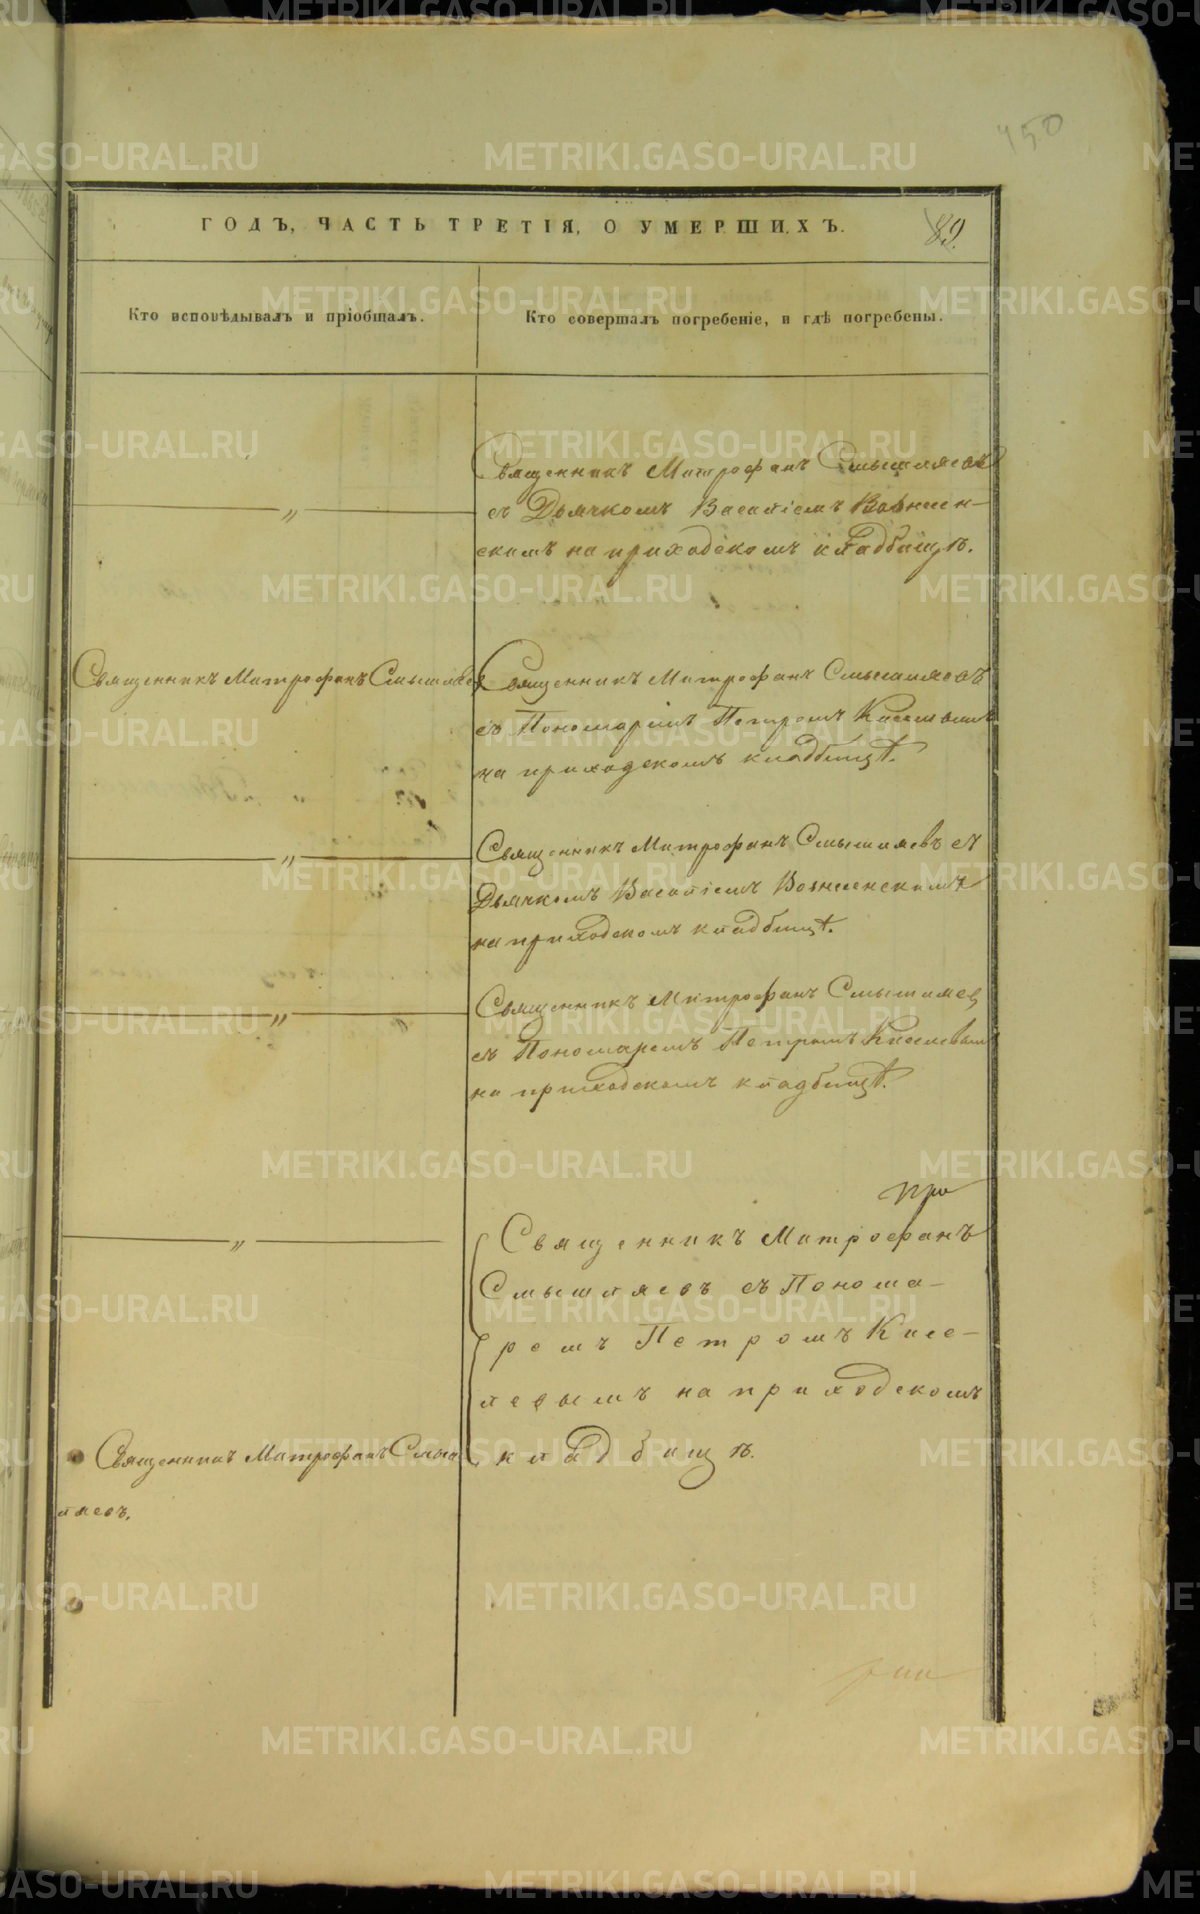 450
ГОДЪ, ЧАСТЬ ТРЕТІЯ, О УМЕРШИХЪ.
89.
Кто исповѣдывалъ и пріобщалъ.
Кто совершалъ погребеніе, и гдѣ погребены.
Священникъ Митрофанъ Смышляевъ
съ Дьячкомъ Василіемъ Вознесен-
скимъ на приходскомъ кладбищѣ.
Священникъ Митрофанъ Смышляев
Священникъ Митрофанъ Смышляевъ
съ Пономаремъ Петромъ Киселевымъ
на приходскомъ кладбищѣ.
Священникъ Митрофанъ Смышляевъ съ
Дьячкомъ Василіемъ Вознесенскимъ
на приходскомъ кладбищѣ.
Священникъ Митрофанъ Смышляев
съ Пономаремъ Петромъ Киселевым
на приходскомъ кладбищѣ.
при
Священникъ Митрофанъ
Смышляевъ съ Понома-
ремъ Петромъ Кисе-
левымъ на приходскомъ
кладбищѣ.
Священникъ Митрофанъ Смыш
ляевъ.
METRIKI.GASO-URAL.RU